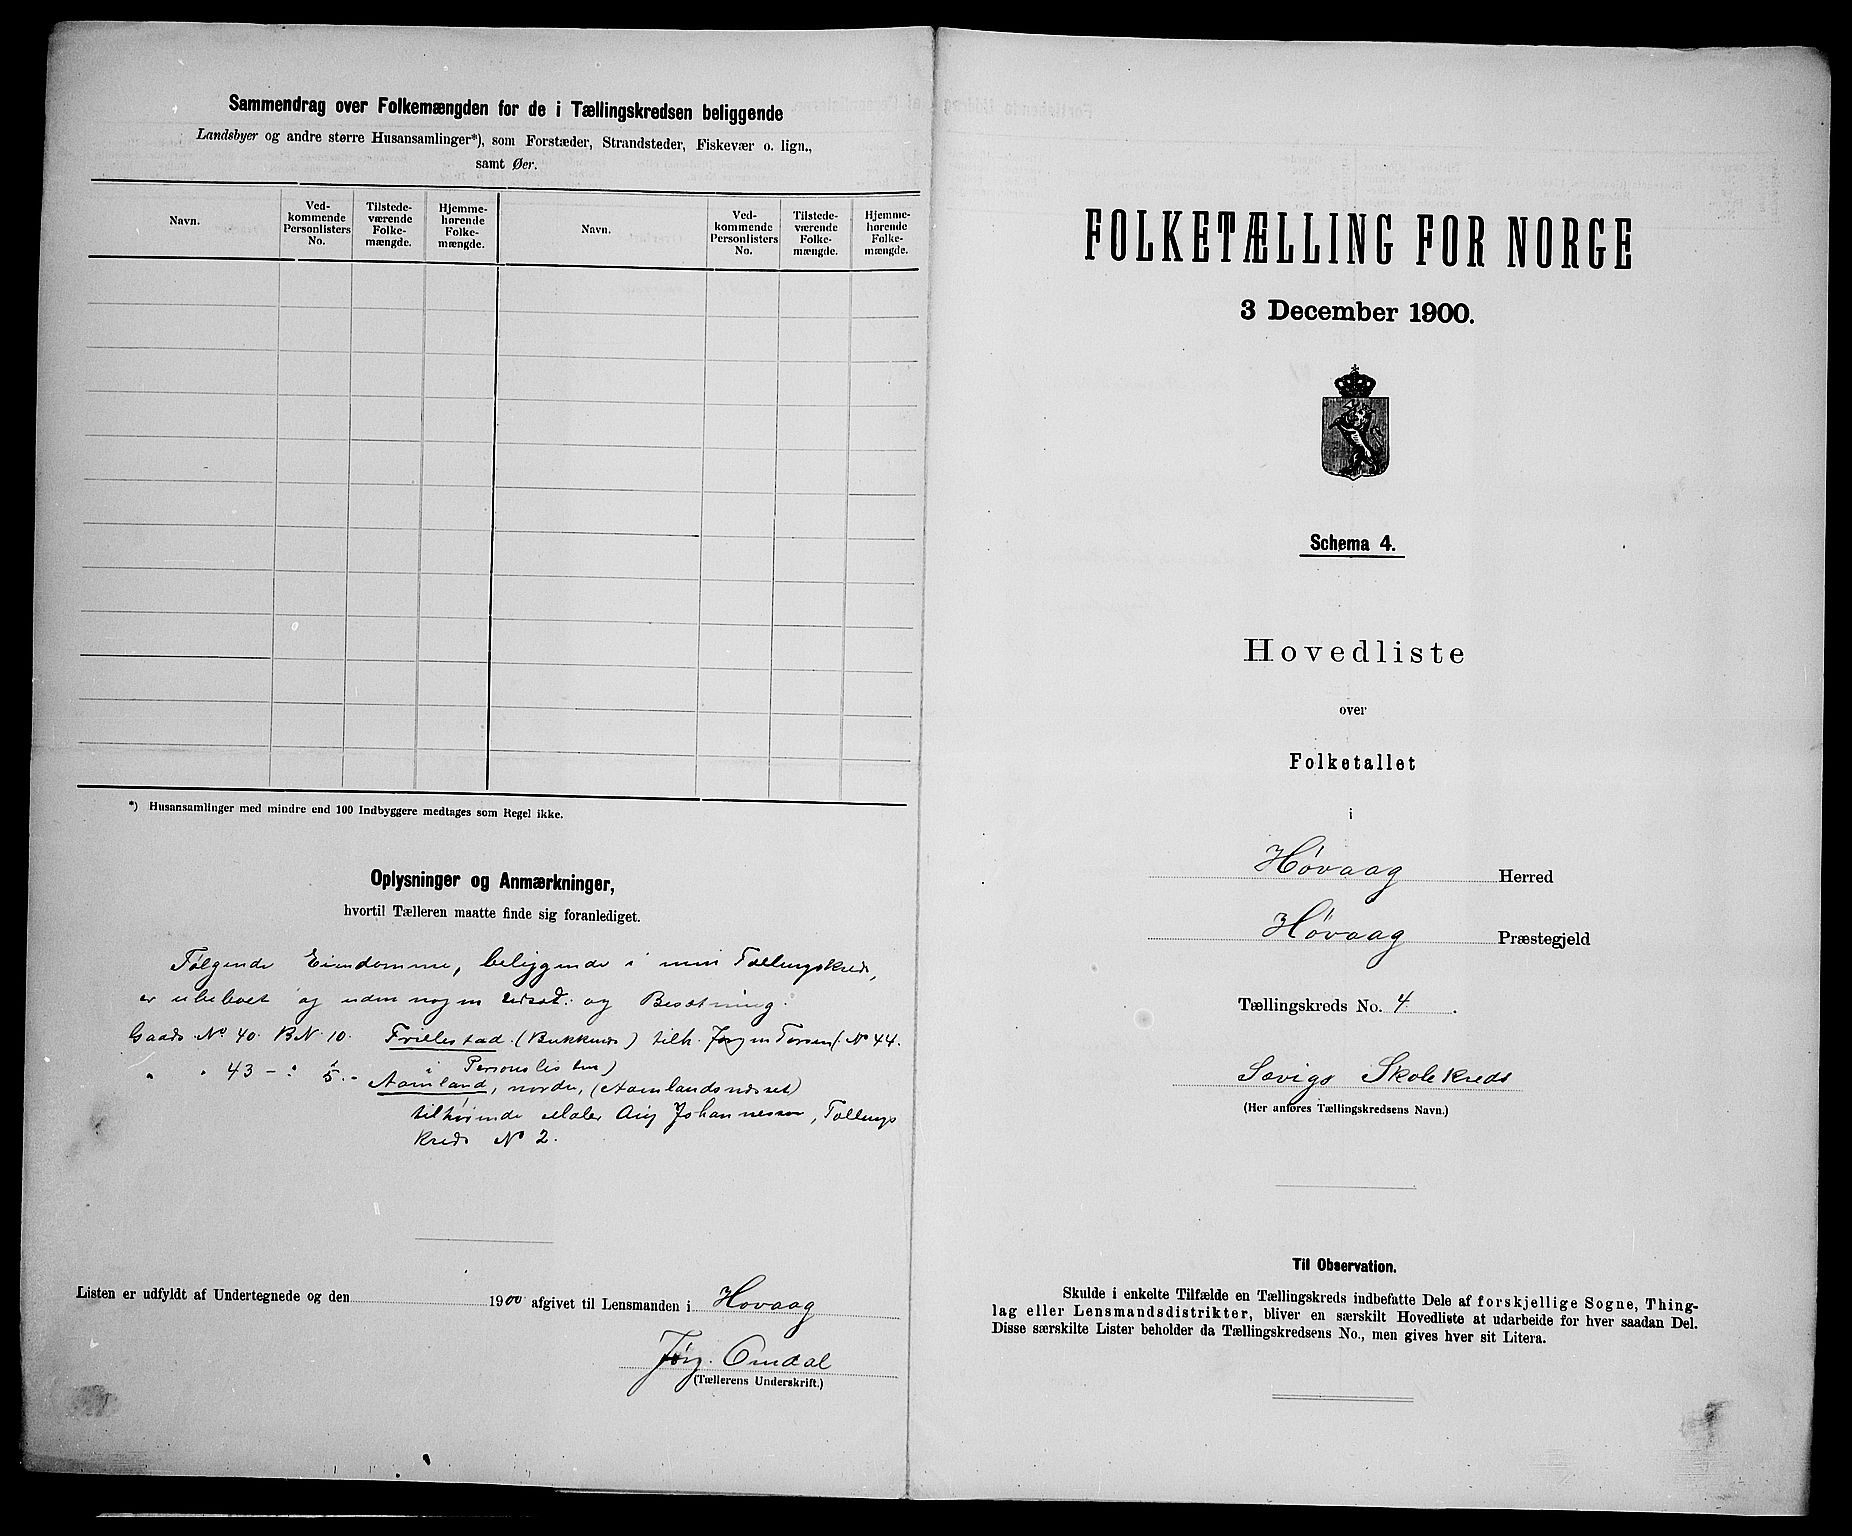 Sammendrag over Folkemængden for de i Tællingskredsen beliggende
Landsbyer og andre større Husansamlinger*), som Forstæder, Strandsteder, Fiskevær o. lign.,
samt Øer.
Navn.
Ved-
kommende
Personlisters
No.
Tilstede-
værende
Folke-
mængde.
Hjemme-
hørende
Folke-
mængde.
Navn.
Ved-
kommende
Personlisters
No.
Tilstede-
værende
Folke-
mængde.
Hjemme-
hørende
Folke-
mængde.
*) Husansamlinger med mindre end 100 Indbyggere medtages som Regel ikke.
Oplysninger og Anmærkninger,
hvortil Tælleren maatte finde sig foranlediget.
Følgende Eiendomme, beliggende i min Tællingskreds,
er ubeboet og uden nogen Udsæd og Besætning.
Gaards No 40. BN 10. Frillestad (Bukknes) tilh. Jørgen Torsen (No 44.
Personlisten)
" " 43 - " 5. - Aamland, nordre, (Aamlandsnæset)
tilhørende Maler Aug Johannessen, Tællings
kreds No 2.
Listen er udfyldt af Undertegnede og den 1900 afgivet til Lensmanden i Høvaag
Jørg. Omdal
(Tællerens Underskrift.)
FOLKETÆLLING FOR NORGE
3 December 1900.
Schema 4.
Hovedliste
over
Folketallet
i
Høvaag Herred
Høvaag Præstegjeld
Tællingskreds No. 4.
Sævigs Skolekreds
(Her anføres Tællingskredsens Navn.)
Til Observation.
Skulde i enkelte Tilfælde en Tællingskreds indbefatte Dele af forskjellige Sogne, Thing-
lag eller Lensmandsdistrikter, bliver en særskilt Hovedliste at udarbeide for hver saadan Del.
Disse særskilte Lister beholder da Tællingskredsens No., men gives hver sit Litera.